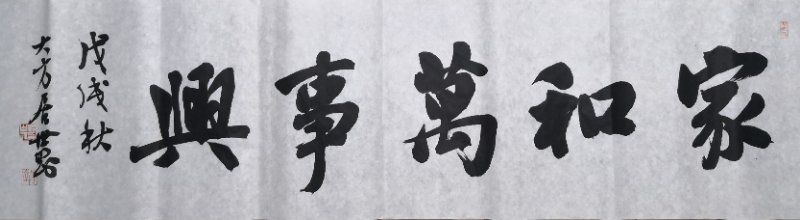 家和萬事興
戊戌秋
大方居世昌